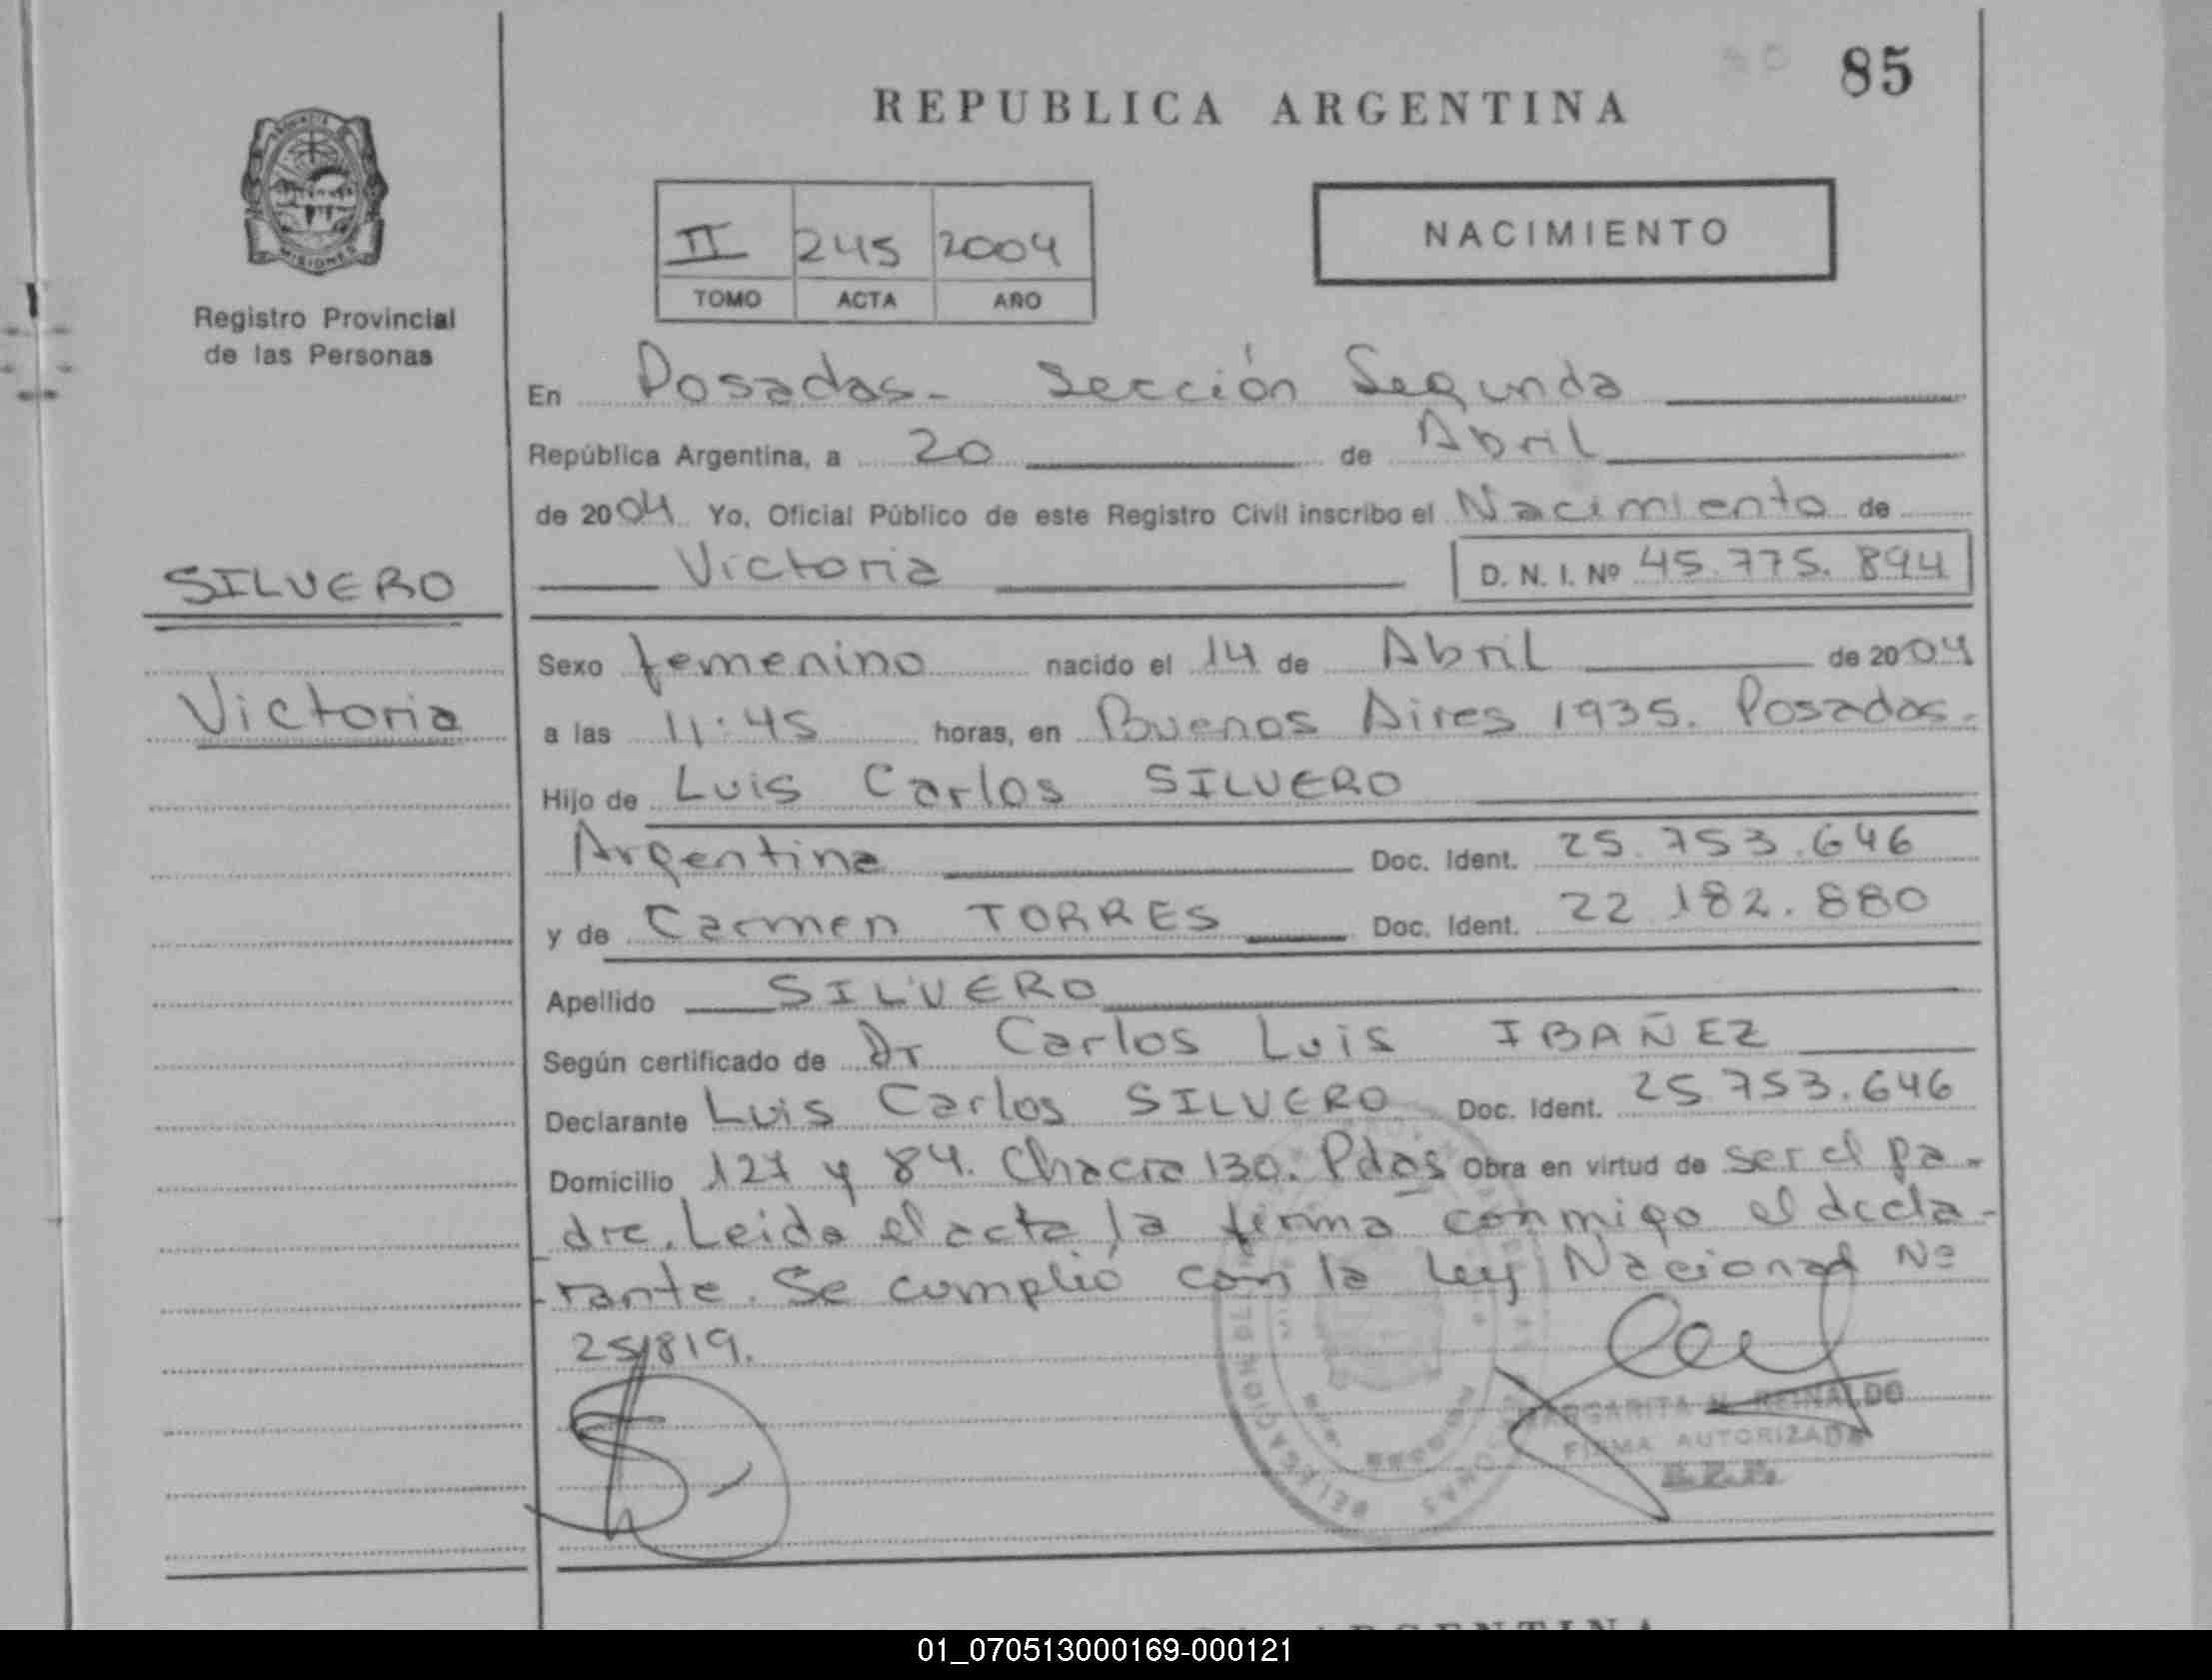 85
REPUBLICA ARGENTINA
MISIONES
Registro Provincial
de las Personas
II 245 2004
TOMO ACTA AÑO
NACIMIENTO
En Posadas - Sección Segunda
República Argentina, a 20 de Abril
de 2004 Yo, Oficial Público de este Registro Civil inscribo el Nacimiento de
Victoria D. N. I. Nº 45.775.894
SILVERO
Victoria
Sexo femenino nacido el 14 de Abril de 2004
a las 11:45 horas, en Buenos Aires 1935. Posadas-
Hijo de Luis Carlos SILVERO
Argentina Doc. Ident. 25.753.646
y de Carmen TORRES Doc. Ident. 22.182.880
Apellido SILVERO
Según certificado de Dr Carlos Luis IBAÑEZ
Declarante Luis Carlos SILVERO Doc. Ident. 25.753.646
Domicilio 127 y 84. Chacra 130. Pdas Obra en virtud de ser el pa-
dre. Leida el acta la firma conmigo el decla-
rante. Se cumplió con la Ley Nacional Nº
25819.
MARGARITA REINALDO
FIRMA AUTORIZADA
01_070513000169-000121